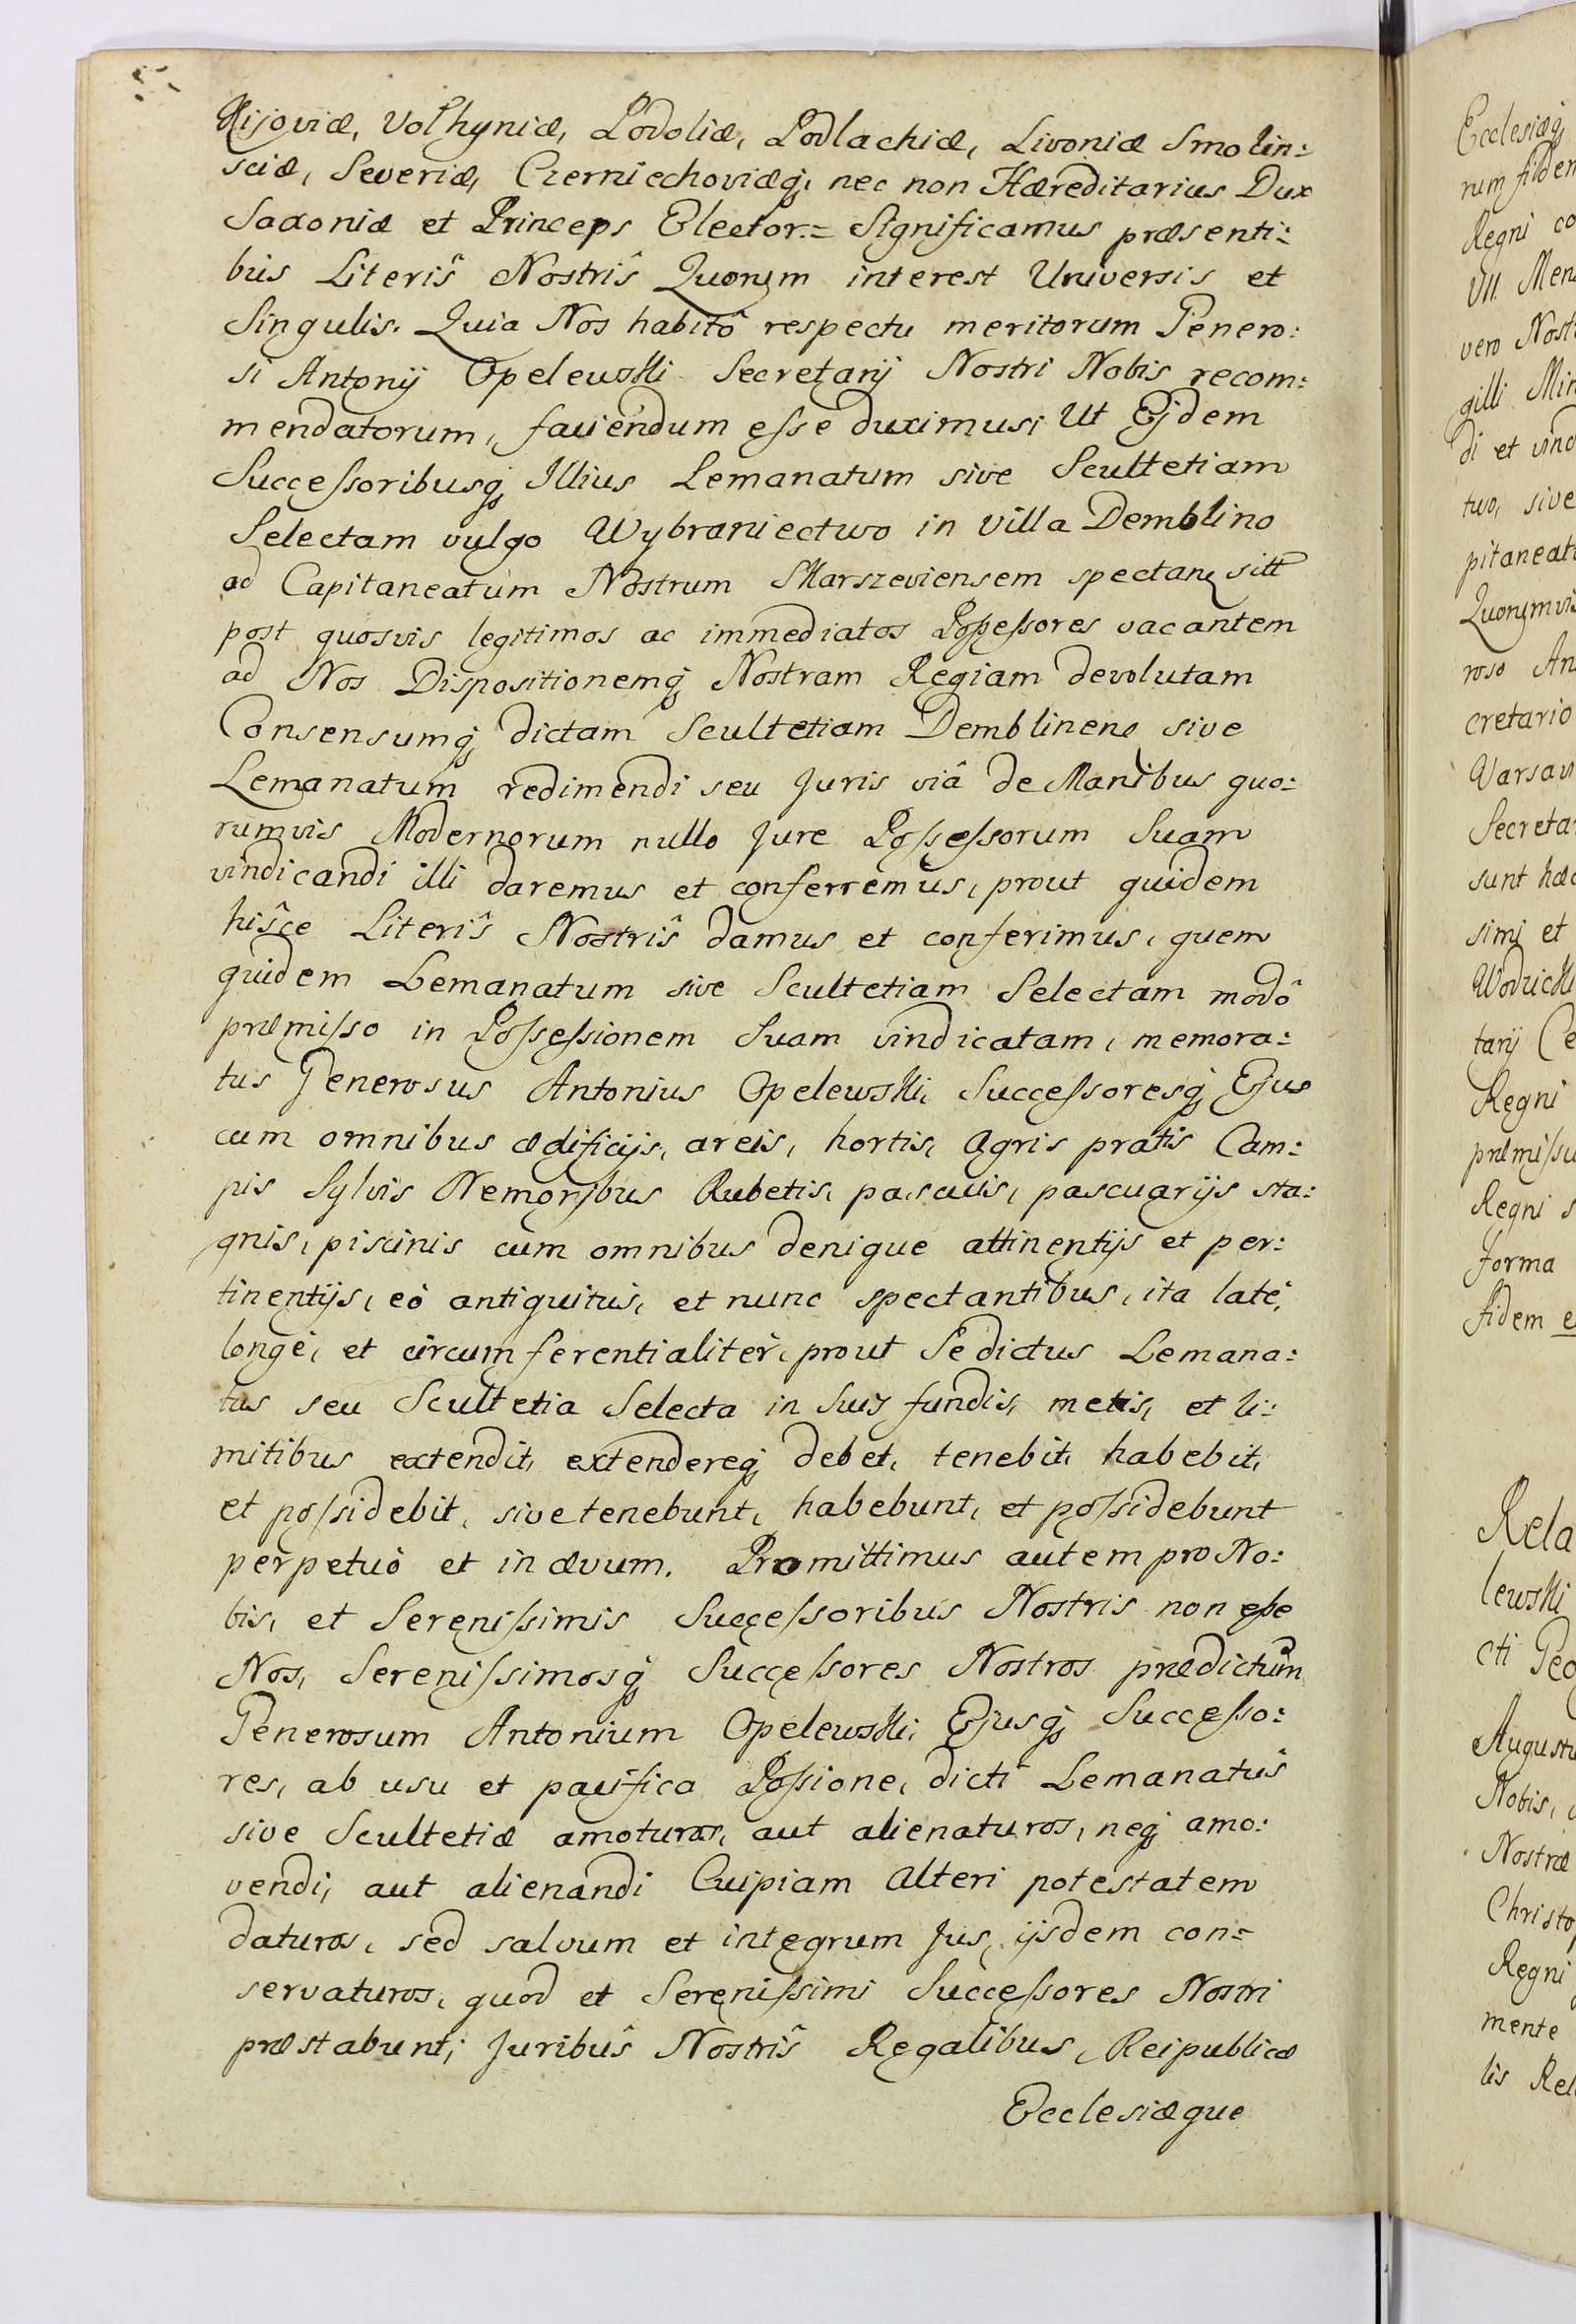 Kijoviæ, Volhyniæ, Podoliæ, Podlachiæ, Livoniæ Smolin:
sciæ, Severiæ, Czerniechoviæq, nec non Hæreditarius Dux
Saxoniæ et Princeps Elector.= Significamus præsenti:
bus Literîs Nostrîs Quorum interest Universis et
Singulis. Quia Nos habitô respectu meritorum Genero:
si Antonij Opelewski Secretarij Nostri Nobis recom:
mendatorum, faviendum esse duximus; Ut Ejdem
Successoribusq Illius Lemanatum sive Scultetiam
Selectam vulgo Wybraniectwo in villa Demblino
ad Capitaneatum Nostrum Marszeviensem spectan sitt
post quosvis legitimos ac immediatos Possessores vacantem
ad Nos Dispositionemq Nostram Regiam devolutam
Consensumq dictam Scultetiam Demblinens sive
Lemanatum redimendi seu Juris viâ de Manibus quo:
rumvis Modernorum nullo Jure Possessorum Suam
vindicandi illi daremus et conferremus, prout quidem
hîsce Literîs Nostrîs damus et conferimus, quem
quidem Lemanatum sive Scultetiam Selectam modô
præmisso in Possessionem Suam vindicatam, memora:
tus Generosus Antonius Opelewski, Successoresq Ejus
cum omnibus ædificijs, areis, hortis, Agris pratis Cam:
pis Sylvis Nemoribus Rubetis, pascuis, pascuarijs sta:
gnis, piscinis cum omnibus denique attinentijs et per:
tinentijs, eò antiquitus, et nunc spectantibus, ita latè,
longè, et circumferentialiter, prout Se dictus Lemana:
tus seu Scultetia Selecta in Suis fundis, metis, et li:
mitibus extendit, extendereq debet, tenebit, habebit,
et possidebit, sive tenebunt, habebunt, et possidebunt
perpetuò et in ævum. Promittimus autem pro No:
bis, et Serenissimis Successoribus Nostris non esse
Nos, Serenissimosq Successores Nostros prædictum
Generosum Antonium Opelewski, Ejusq Successo:
res, ab usu et pacifica Possione, dicti Lemanatûs
sive Scultetiæ amoturos, aut alienaturos, neq amo:
vendi, aut alienandi Cuipiam Alteri potestatem
daturos, sed salvum et integrum Jus, ijsdem con:
servaturos, quod et Serenissimi Successores Nostri
præstabunt; Juribûs Nostrîs Regalibus, Reipublicæ
Ecclesiæque
Ecclesiæq
rum fidem
Regni co
VII Men
vero Nost
gilli Min
di et vind
two, sive
pitaneat
Quorumvis
roso An
cretario
Varsav
Secreta
sunt hæc
simi et
Wodzick
tarij Ce
Regni
præmissu
Regni s
forma
fidem e
Rela
lewski
cti Geo
Augustu
Nobis,
Nostræ
Christo
Regni
mente
lis Rel